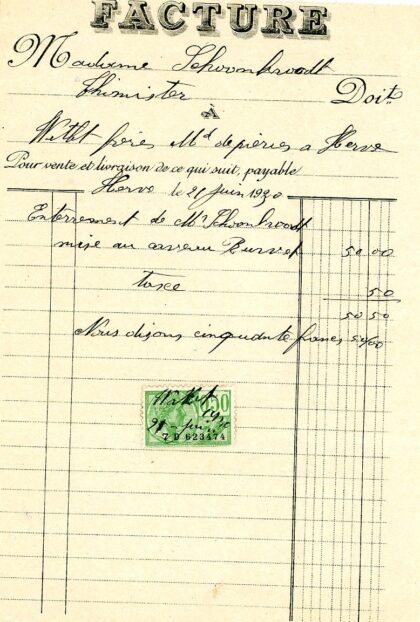 FACTURE
Madame Schoonbroodt
Thimister Doit.
À
Witlet frères Md de pières a Herve
Pour vente et livraison de ce qui suit, payable
Herve le 21 juin 1930
Enterrement de Mr Schoonbroodt
mise au caveau 50.00
taxe 50
50 50
Nous disons cinquante francs 50/00
0,50
21 - juin 30
7 D 623474